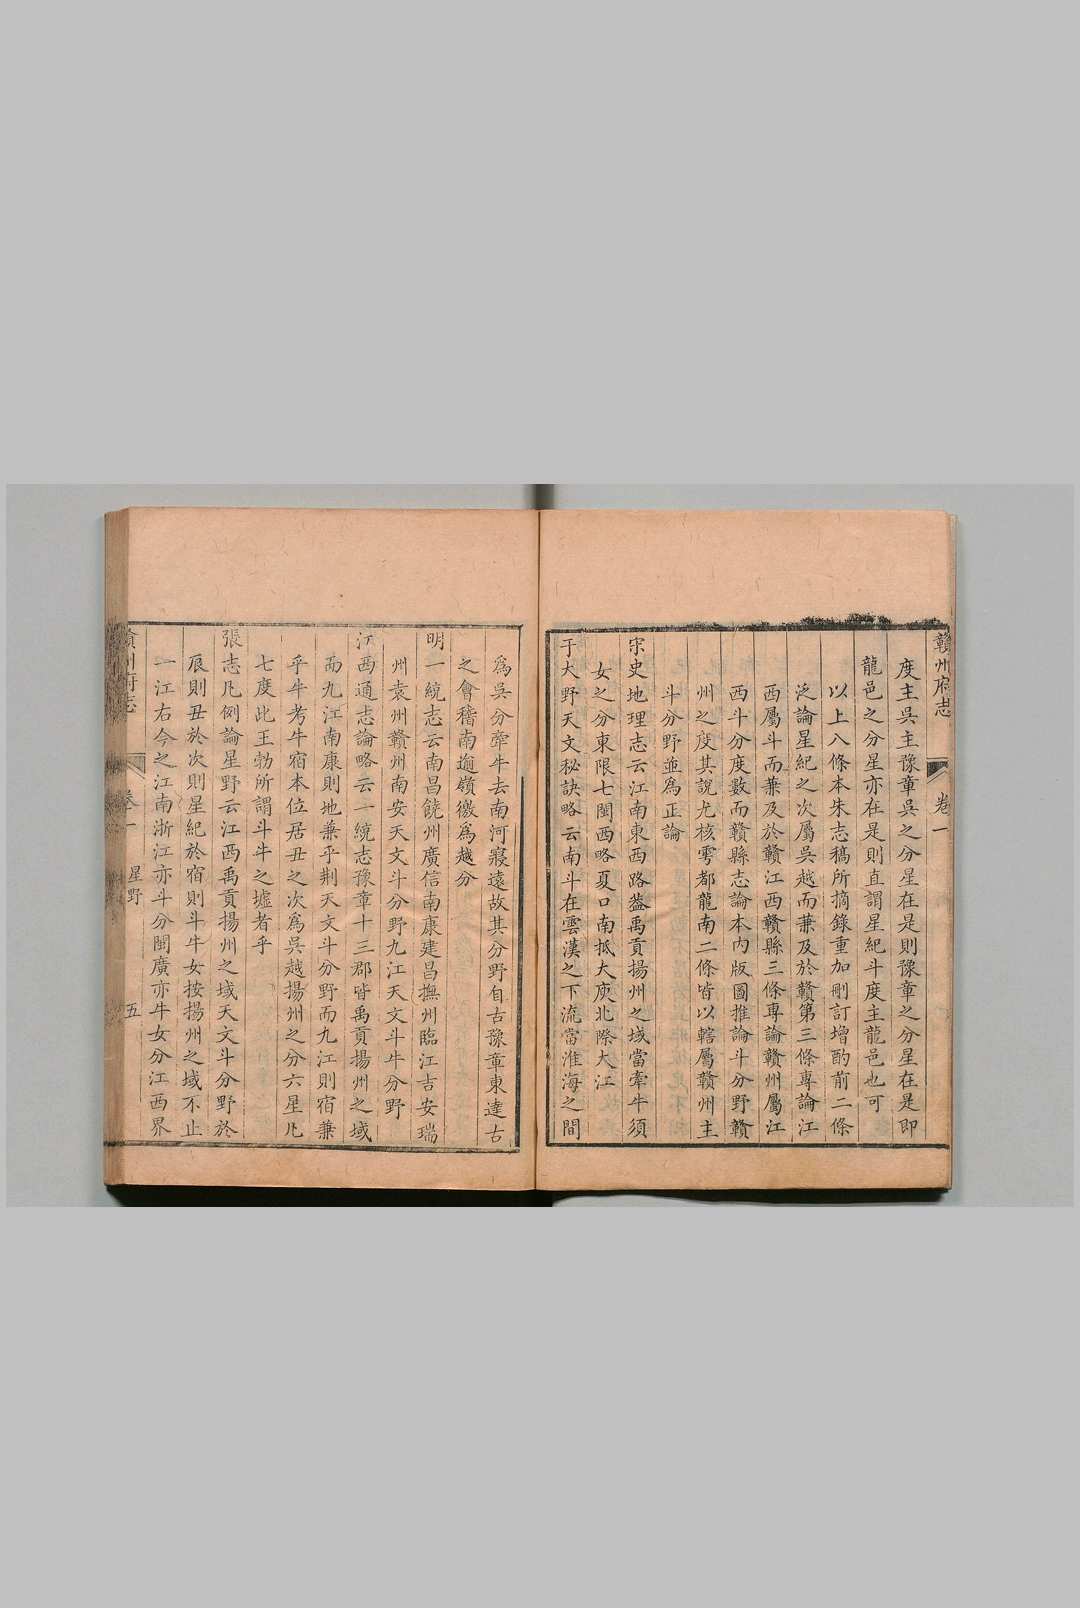 贛州府志
卷一
度主吳主豫章吳之分星在是則豫章之分星在是即
龍邑之分星亦在是則直謂星紀斗度主龍邑也可
以上八條本朱志稿所摘錄重加刪訂增酌前二條
泛論星紀之次屬吳越而兼及於贛第三條專論江
西屬斗而兼及於贛江西贛縣三條專論贛州屬江
西斗分度數而贛縣志論本內版圖推論斗分野贛
州之度其說尤核雩都龍南二條皆以轄屬贛州主
斗分野並為正論
宋史地理志云江南東西路葢禹貢揚州之域當牽牛須
女之分東限七閩西略夏口南抵大庾北際大江
于大野天文秘訣略云南斗在雲漢之下流當淮海之間
為吳分牽牛去南河寢遠故其分野自古豫章東達古
之會稽南逾嶺徼為越分
明一統志云南昌饒州廣信南康建昌撫州臨江吉安瑞
州袁州贛州南安天文斗分野九江天文斗牛分野
江西通志論略云一統志豫章十三郡皆禹貢揚州之域
而九江南康則地兼乎荆天文斗分野而九江則宿兼
乎牛考牛宿本位居丑之次為吳越揚州之分六星凡
七度此王勃所謂斗牛之墟者乎
張志凡例論星野云江西禹貢揚州之域天文斗分野於
辰則丑於次則星紀於宿則斗牛女按揚州之域不止
一江右今之江南浙江亦斗分閩廣亦牛女分江西界
州府志
卷一
星野
五